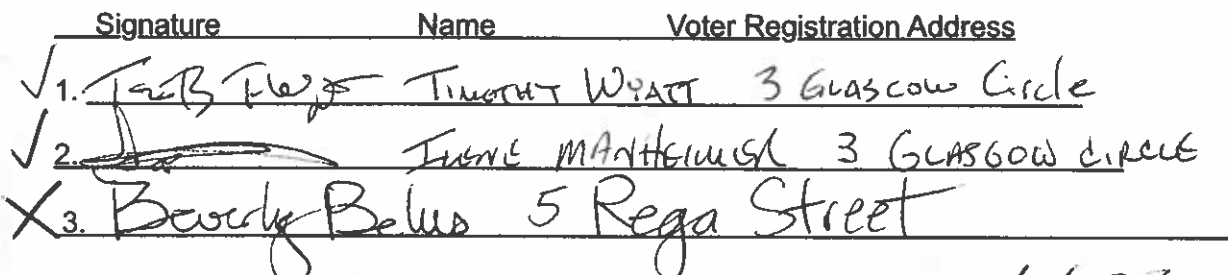 Signature Name Voter Registration Address
✓ 1. TIMOTHY WYATT 3 GLASCOW Circle
✓ 2. MANHEIMER 3 GLASGOW CIRCLE
X 3. Beverly Belus 5 Rega Street